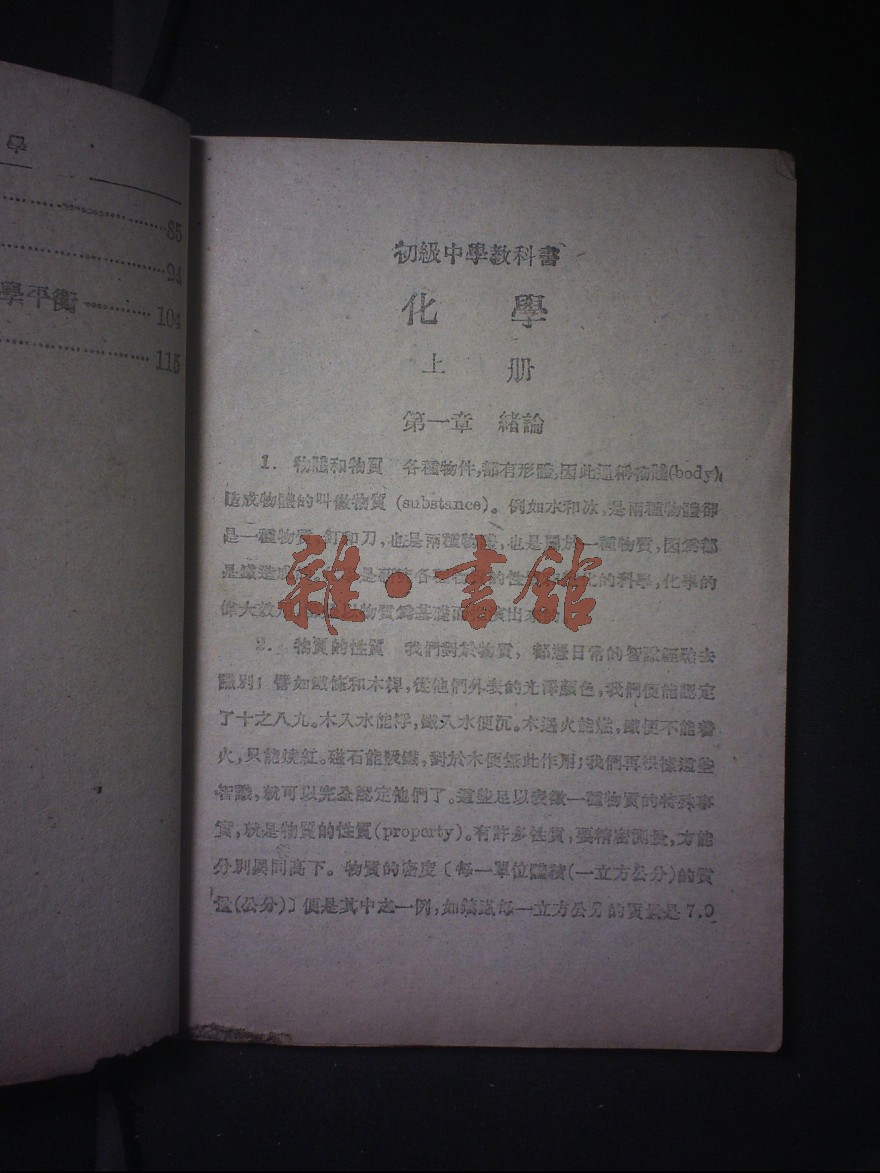 學
85
94
學平衡 104
115
初級中學教科書
化 學
上 册
第一章 緒論
1. 物體和物質 各種物件,都有形體,因此通稱物體(body),
造成物體的叫做物質 (substance)。例如水和冰,是兩種物體卻
是一種物質,釘和刀,也是兩種物體,也是屬於一種物質,因爲都
是鐵造成 是研究各種 的性 化的科學,化學的
偉大效 以物質爲基礎而 演出來
雜·書館
2. 物質的性質 我們對於物質,都憑日常的智識經驗去
識別;譬如鐵條和木桿,從他們外表的光澤顏色,我們便能認定
了十之八九。木入水能浮,鐵入水便沉。木遇火能燃,鐵便不能着
火,只能燒紅。磁石能吸鐵,對於木便無此作用;我們再根據這些
智識,就可以完全認定他們了。這些足以表徵一種物質的特殊事
實,就是物質的性質(property)。有許多性質,要精密測量,方能
分別異同高下。物質的密度〔每一單位體積(一立方公分)的質
量(公分)〕便是其中之一例,如鑄鐵每一立方公分的質量是 7.0